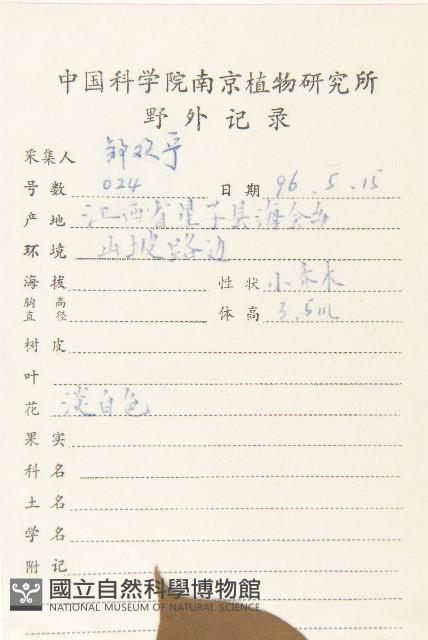 中国科学院南京植物研究所
野外记录
采集人
号数 024 日期 96.5.15
产地 江西省星子县海会
环境 山坡路边
海拔 性状 小乔木
胸高直径 体高 3.5m
树皮
叶
花 淡白色
果实
科名
土名
学名
附记
國立自然科學博物館
NATIONAL MUSEUM OF NATURAL SCIENCE